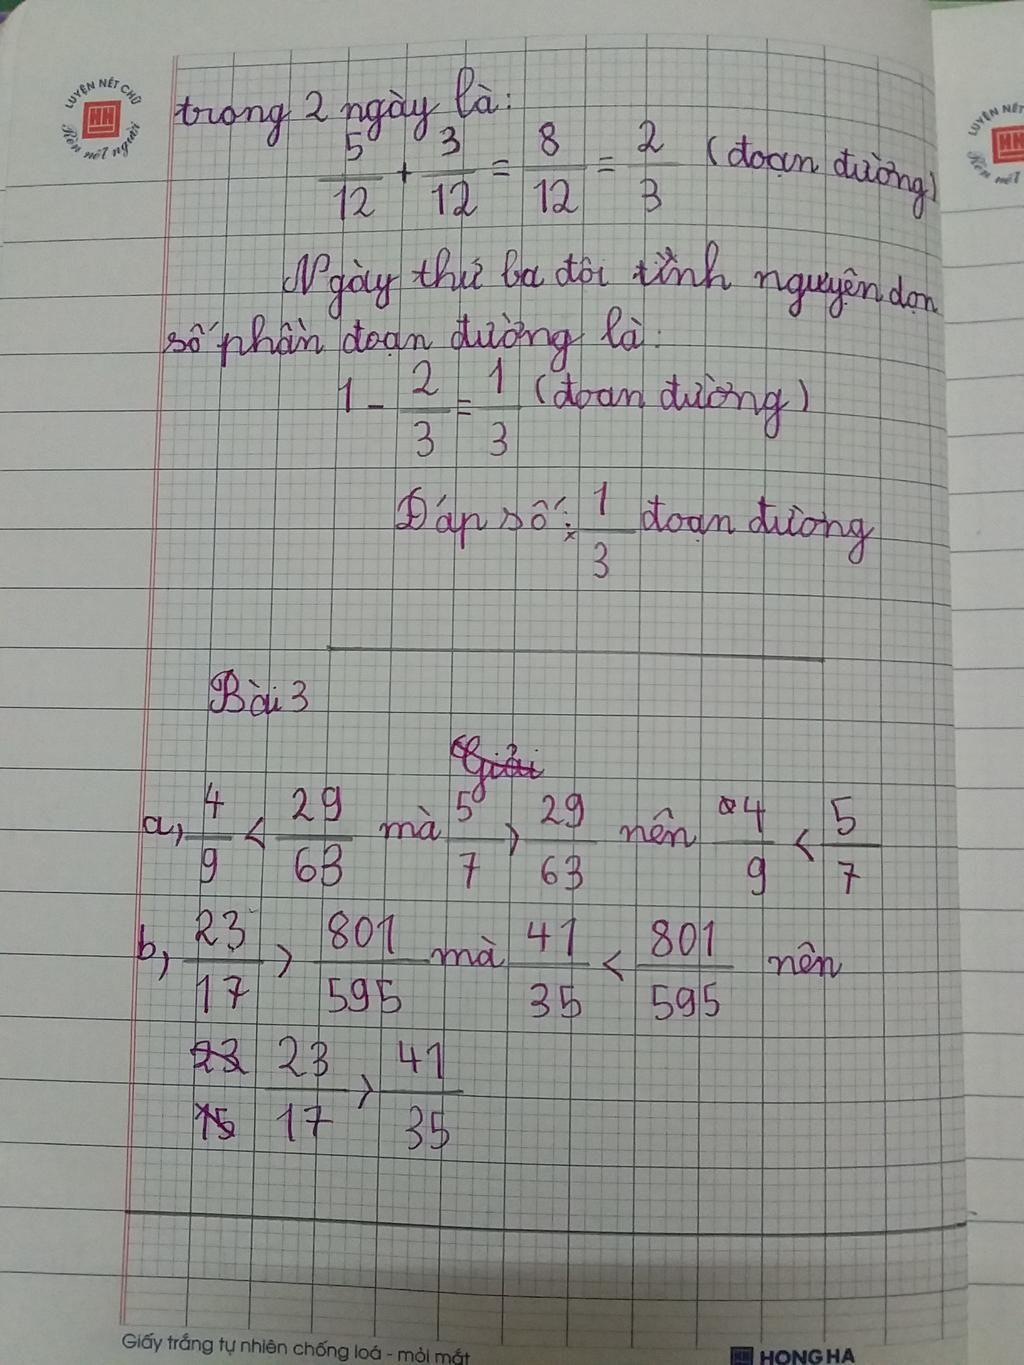 LUYỆN NÉT CHỮ
HH
Rèn nết người
LUYỆN NÉT
HH
Rèn nết
trong 2 ngày là:
5/12 + 3/12 = 8/12 = 2/3 (đoạn đường)
Ngày thứ ba đôi tình nguyện dọn
số phần đoạn đường là:
1 - 2/3 = 1/3 (đoan đường)
Đáp số: 1/3 đoạn đường
Bài 3
Giải
a, 4/9 < 29/63 mà 5/7 > 29/63 nên 4/9 < 5/7
b, 23/17 > 801/595 mà 41/35 < 801/595 nên
23/15 23/17 > 41/35
Giấy trắng tự nhiên chống loá - mỏi mắt
HONG HA